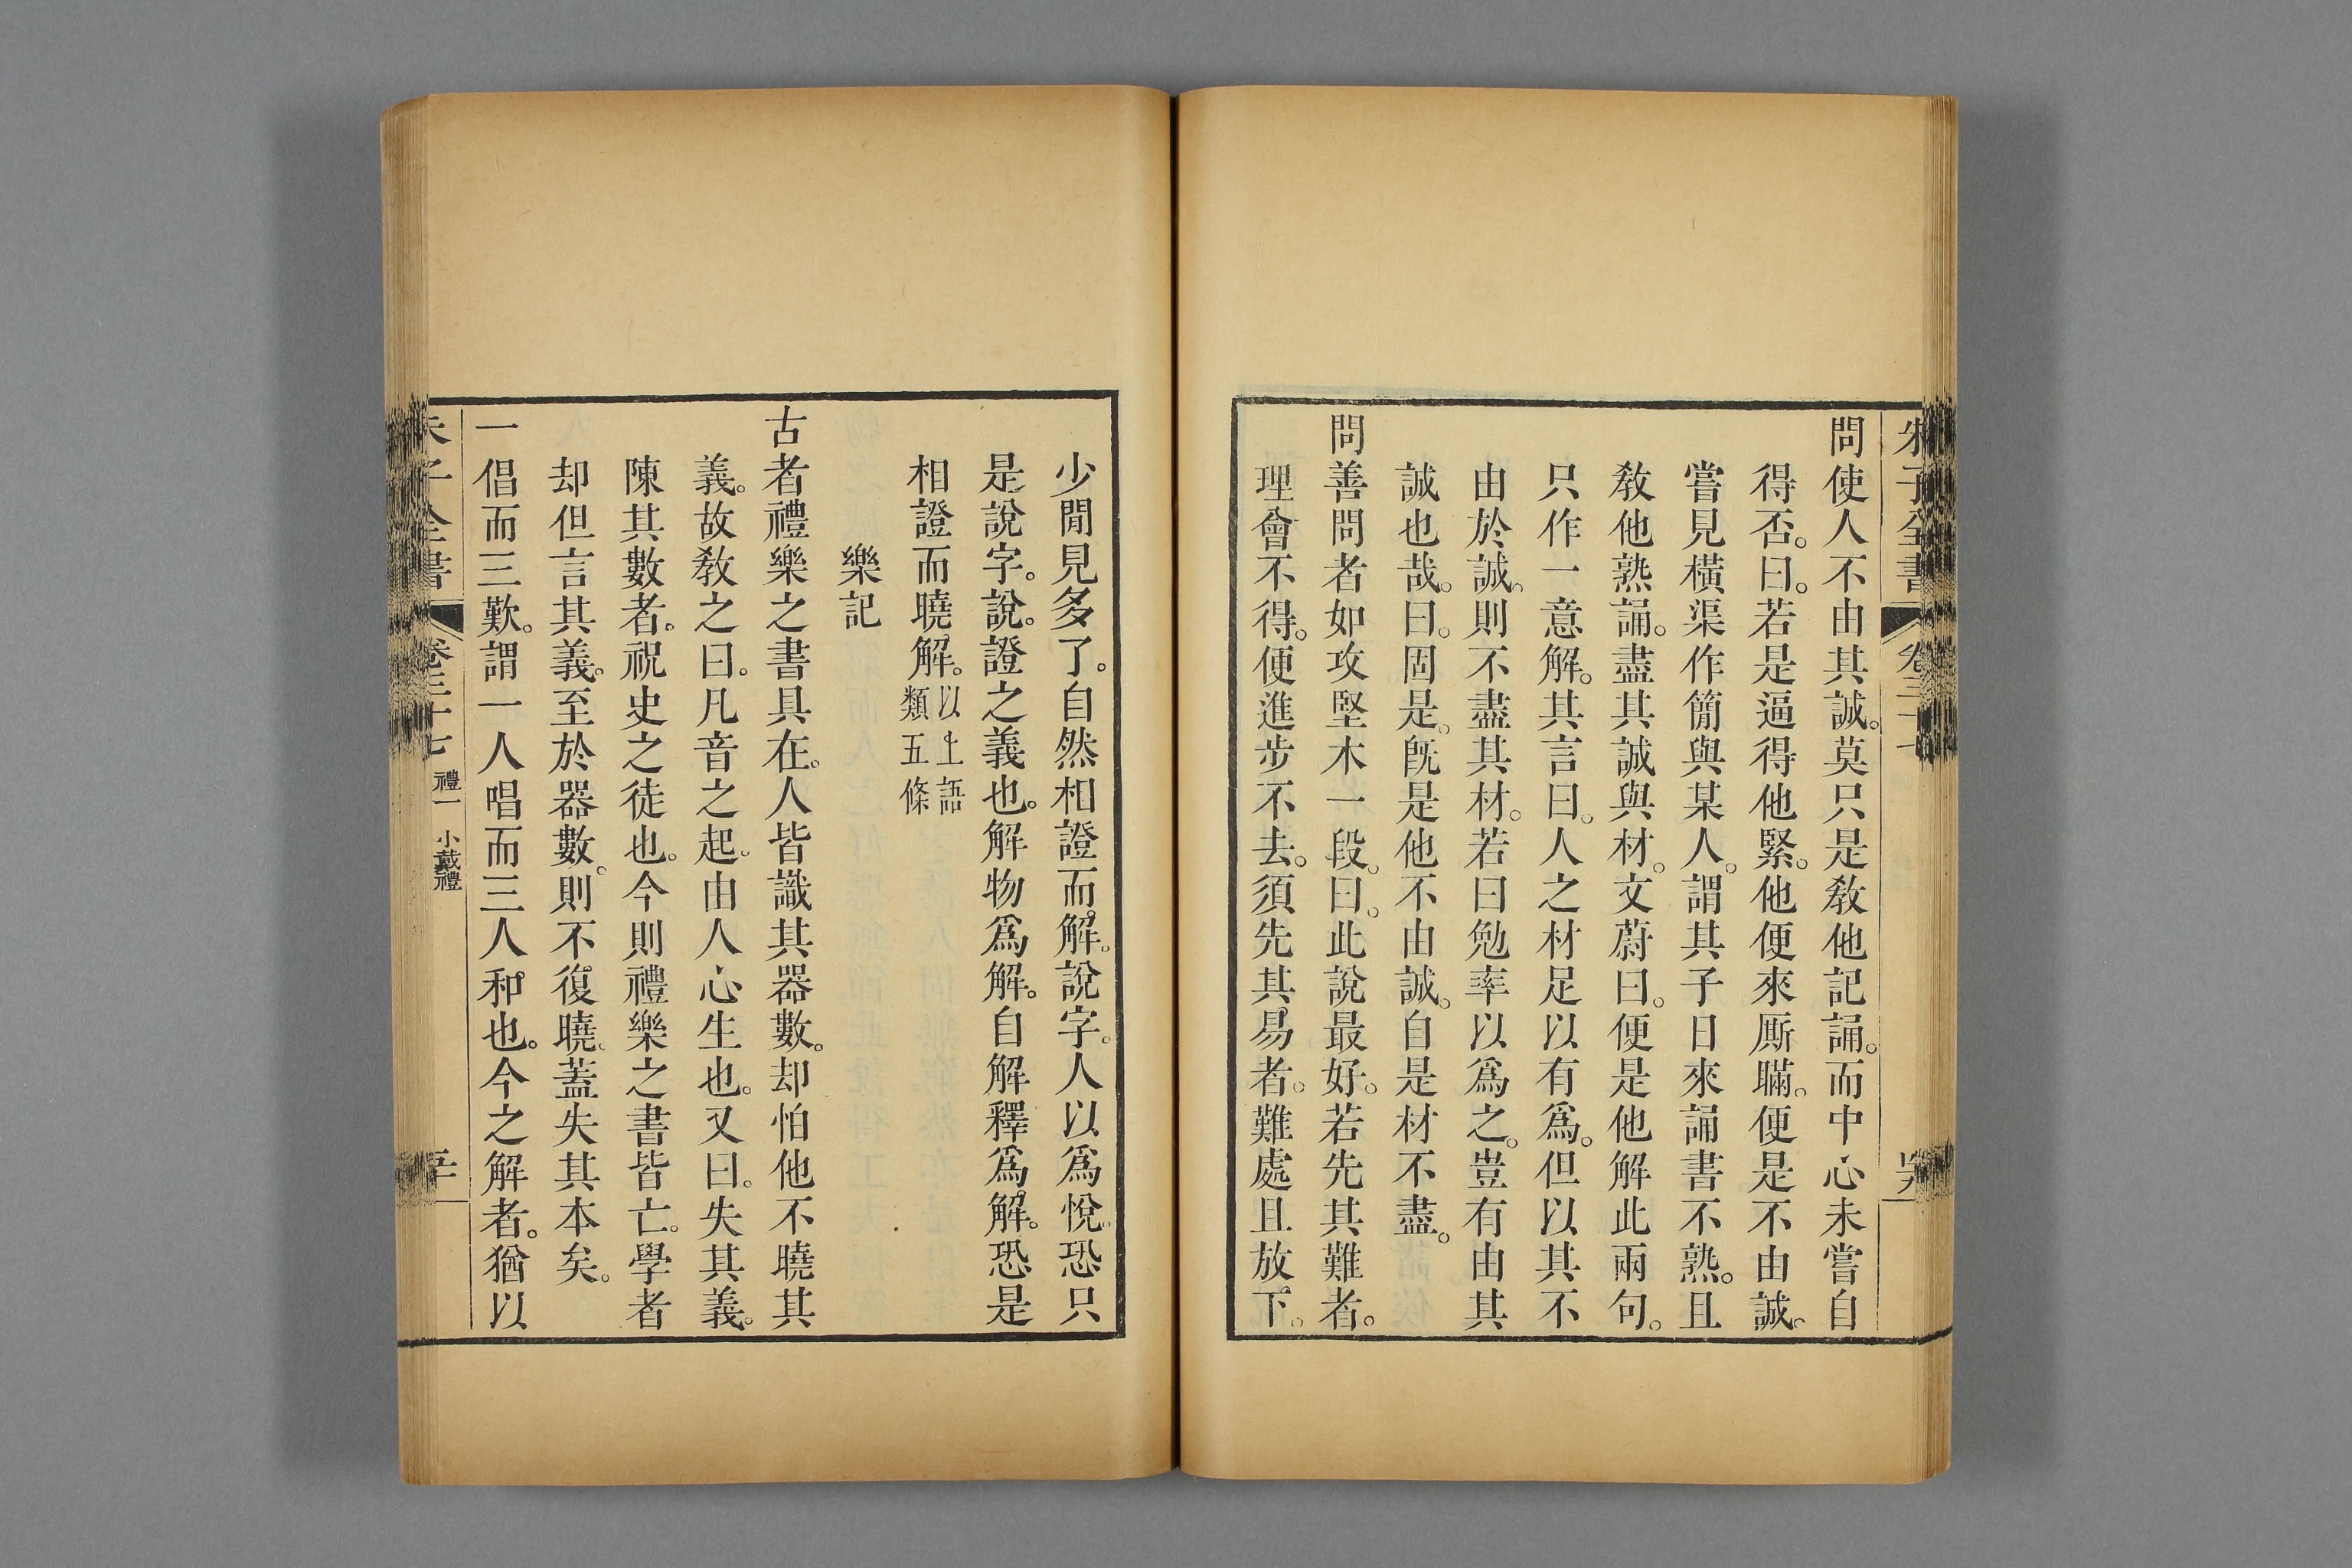 朱子全書 卷三十七
問使人不由其誠。莫只是敎他記誦。而中心未嘗自
得否。曰。若是逼得他緊。他便來厮瞞。便是不由誠。
嘗見橫渠作簡與某人。謂其子日來誦書不熟。且
敎他熟誦。盡其誠與材。文蔚曰。便是他解此兩句。
只作一意解。其言曰。人之材足以有爲。但以其不
由於誠。則不盡其材。若曰勉率以爲之。豈有由其
誠也哉。曰。固是。旣是他不由誠。自是材不盡。
問善問者如攻堅木一段。曰。此說最好。若先其難者。
理會不得。便進步不去。須先其易者。難處且放下。
少閒見多了。自然相證而解。說字。人以爲悅。恐只
是說字。說。證之義也。解物爲解。自解釋爲解。恐是
相證而曉解。以上語類五條
樂記
古者禮樂之書具在。人皆識其器數。却怕他不曉其
義。故敎之曰。凡音之起。由人心生也。又曰。失其義。
陳其數者。祝史之徒也。今則禮樂之書皆亡。學者
却但言其義。至於器數。則不復曉。蓋失其本矣。
一倡而三歎。謂一人唱而三人和也。今之解者。猶以
朱子全書 卷三十七 禮一 小戴禮